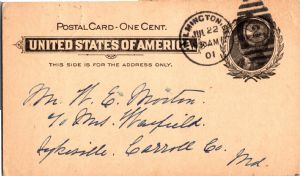 POSTAL CARD - ONE CENT.
UNITED STATES OF AMERICA.
THIS SIDE IS FOR THE ADDRESS ONLY.
WILMINGTON, DEL.
JUL 22
AM
01
Mr. W. E. Morton
c/o Mrs Warfield,
Sykesville, Carroll Co.
Md.